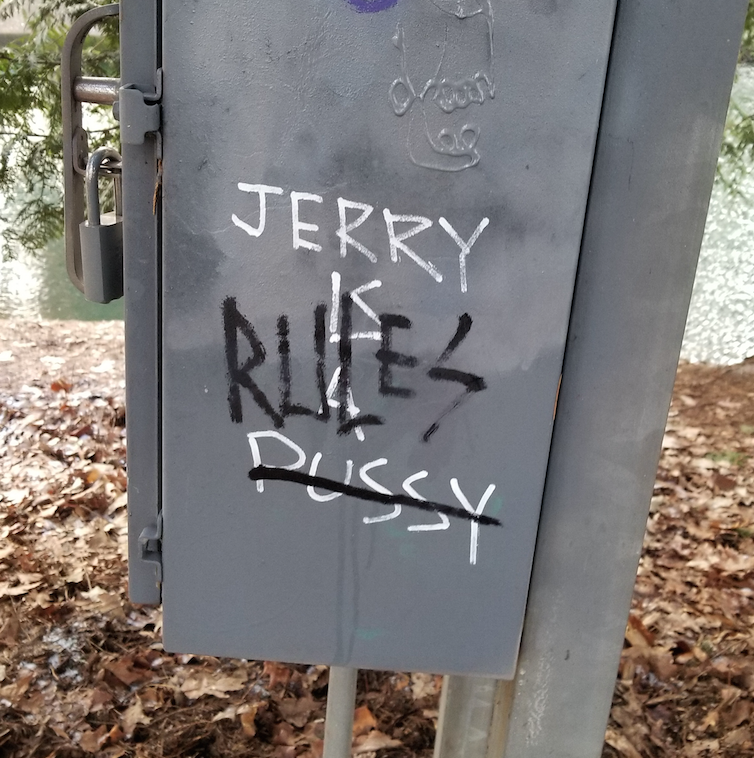 JERRY
IS
RULES
A
PUSSY